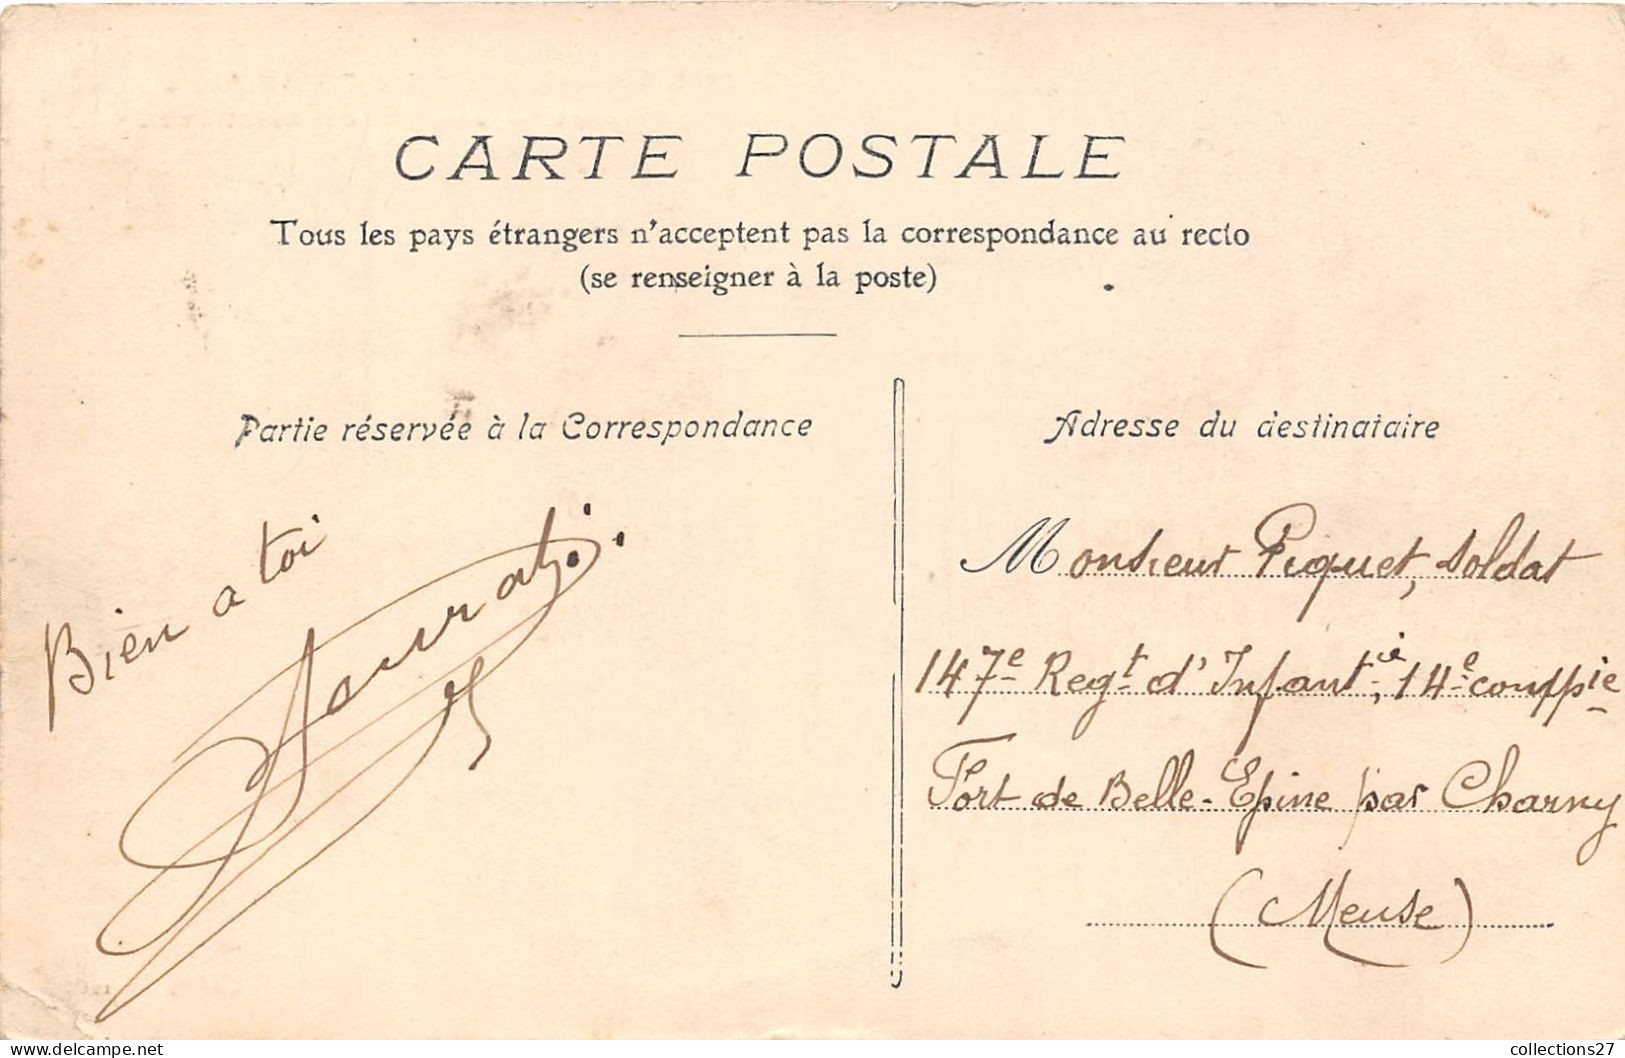 CARTE POSTALE
Tous les pays étrangers n'acceptent pas la correspondance au recto
(se renseigner à la poste)
Partie réservée à la Correspondance
Bien a toi
Adresse du destinataire
Monsieur Piquet, soldat
147e Regt d'Infantie, 14e compie
Fort de Belle-Epine par Charny
(Meuse)
collections27